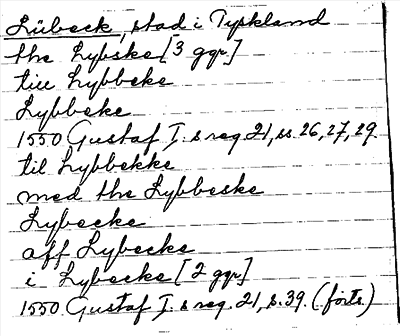 Lübeck, stad i Tyskland
the Lybske [3 ggr]
till Lybbeke
Lybbeke
1550 Gustaf I.s reg 21, ss. 26, 27, 29.
til Lybbekke
med the Lybbeske
Lybecke
aff Lybecke
i Lybecke [2 ggr]
1550 Gustaf I.s reg. 21, s. 39. (forts.)